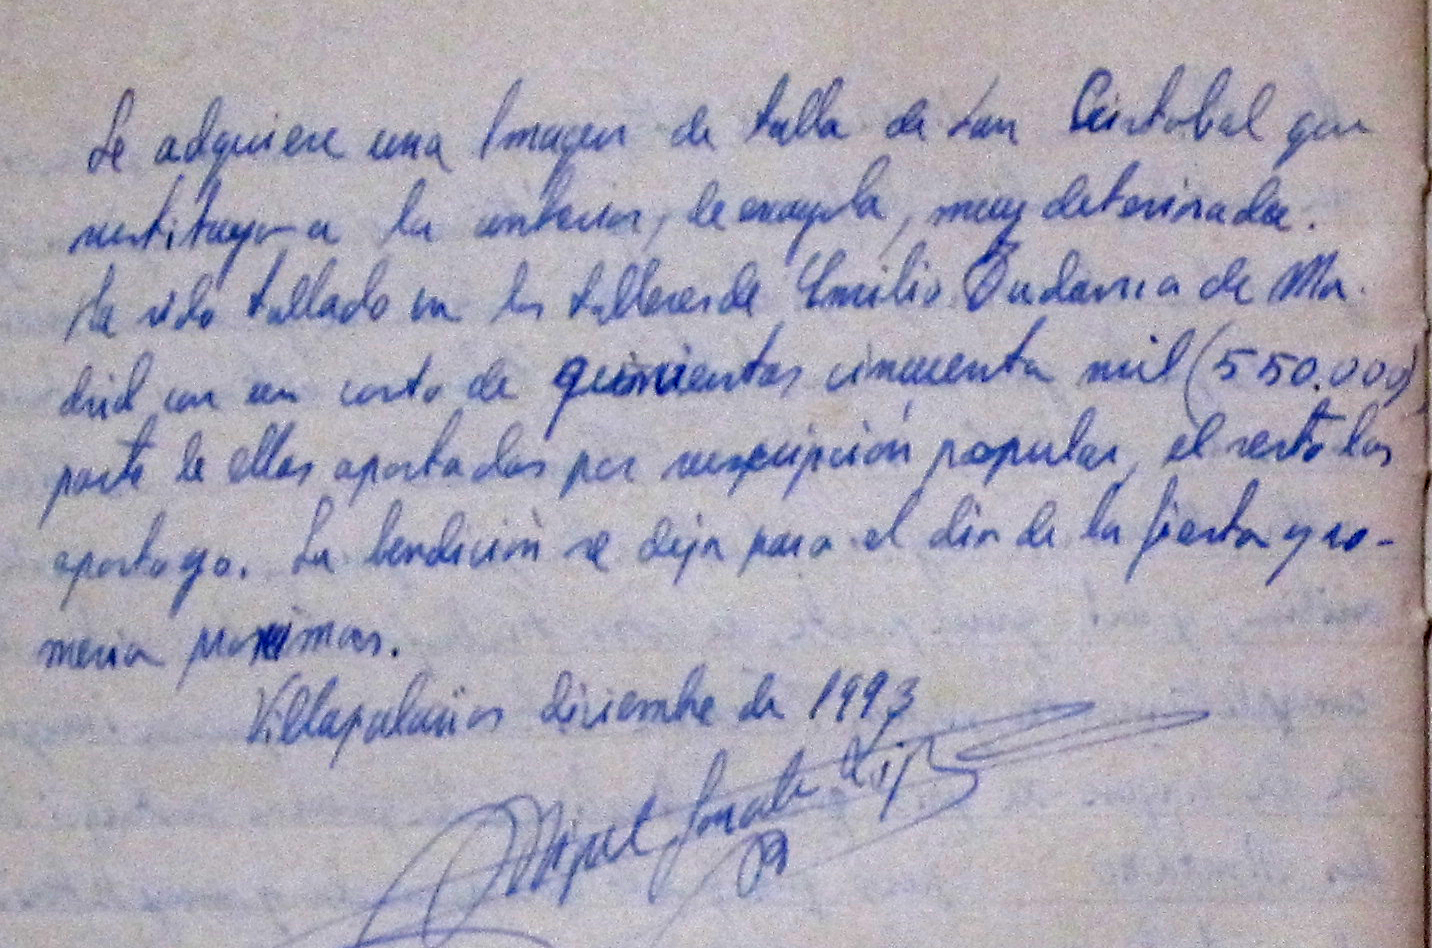 Se adquiere una Imagen de talla de San Cristobal que
sustituye a la anterior, de escayola, muy deteriorada.
Ha sido tallado en los talleres de Emilio Tudanca de Ma-
drid con un costo de quinientas cincuenta mil (550.000)
parte de ellas aportadas por suscripción popular, el resto las
aporto yo. La bendición se deja para el dia de la fiesta y ro-
meria proximas.
Villapalacios diciembre de 1993
Miguel